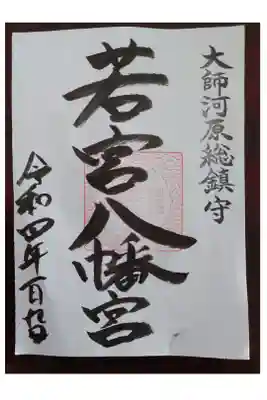 大師河原総鎮守
若宮八幡宮
令和四年